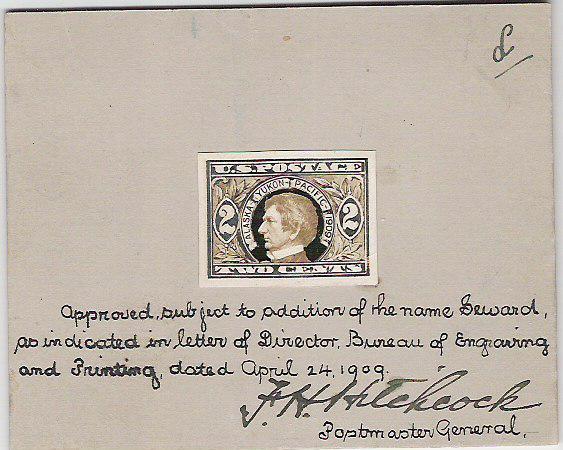 L
U.S.POSTAGE
ALASKA-YUKON-PACIFIC-1909
2 2
TWO CENTS
Approved, subject to addition of the name Seward,
as indicated in letter of Director, Bureau of Engraving
and Printing, dated April 24, 1909.
F. H. Hitchcock
Postmaster General.